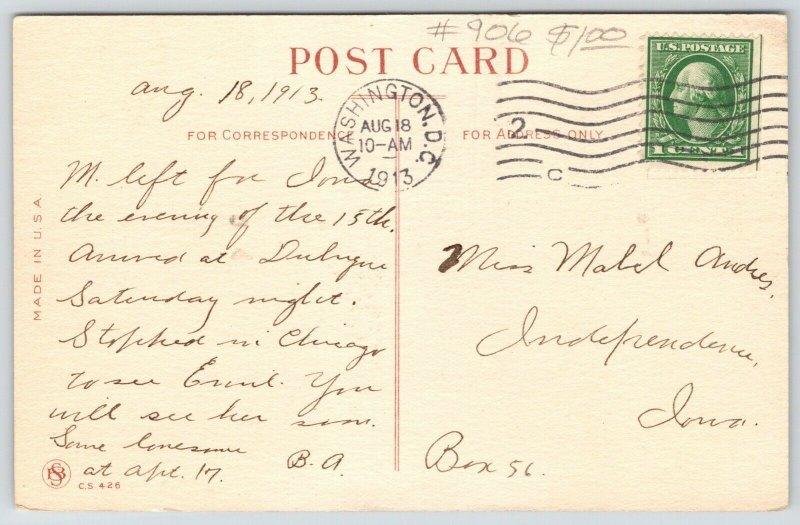 # 906 $1.00
POST CARD
U.S. POSTAGE
1 CENT 1
Aug. 18, 1913.
WASHINGTON, D.C.
AUG 18
10-AM
1913
2
C
FOR CORRESPONDENCE
FOR ADDRESS ONLY
M. left for Iowa
the evening of the 15th.
Arrived at Dubuque
Saturday night.
Stopped in Chicago
to see Emil. You
will see her soon.
Some lonesome
at apt. 17. B.A.
Miss Mabel Andres,
Independence,
Iowa.
Box 56.
MADE IN U.S.A.
C.S. 426